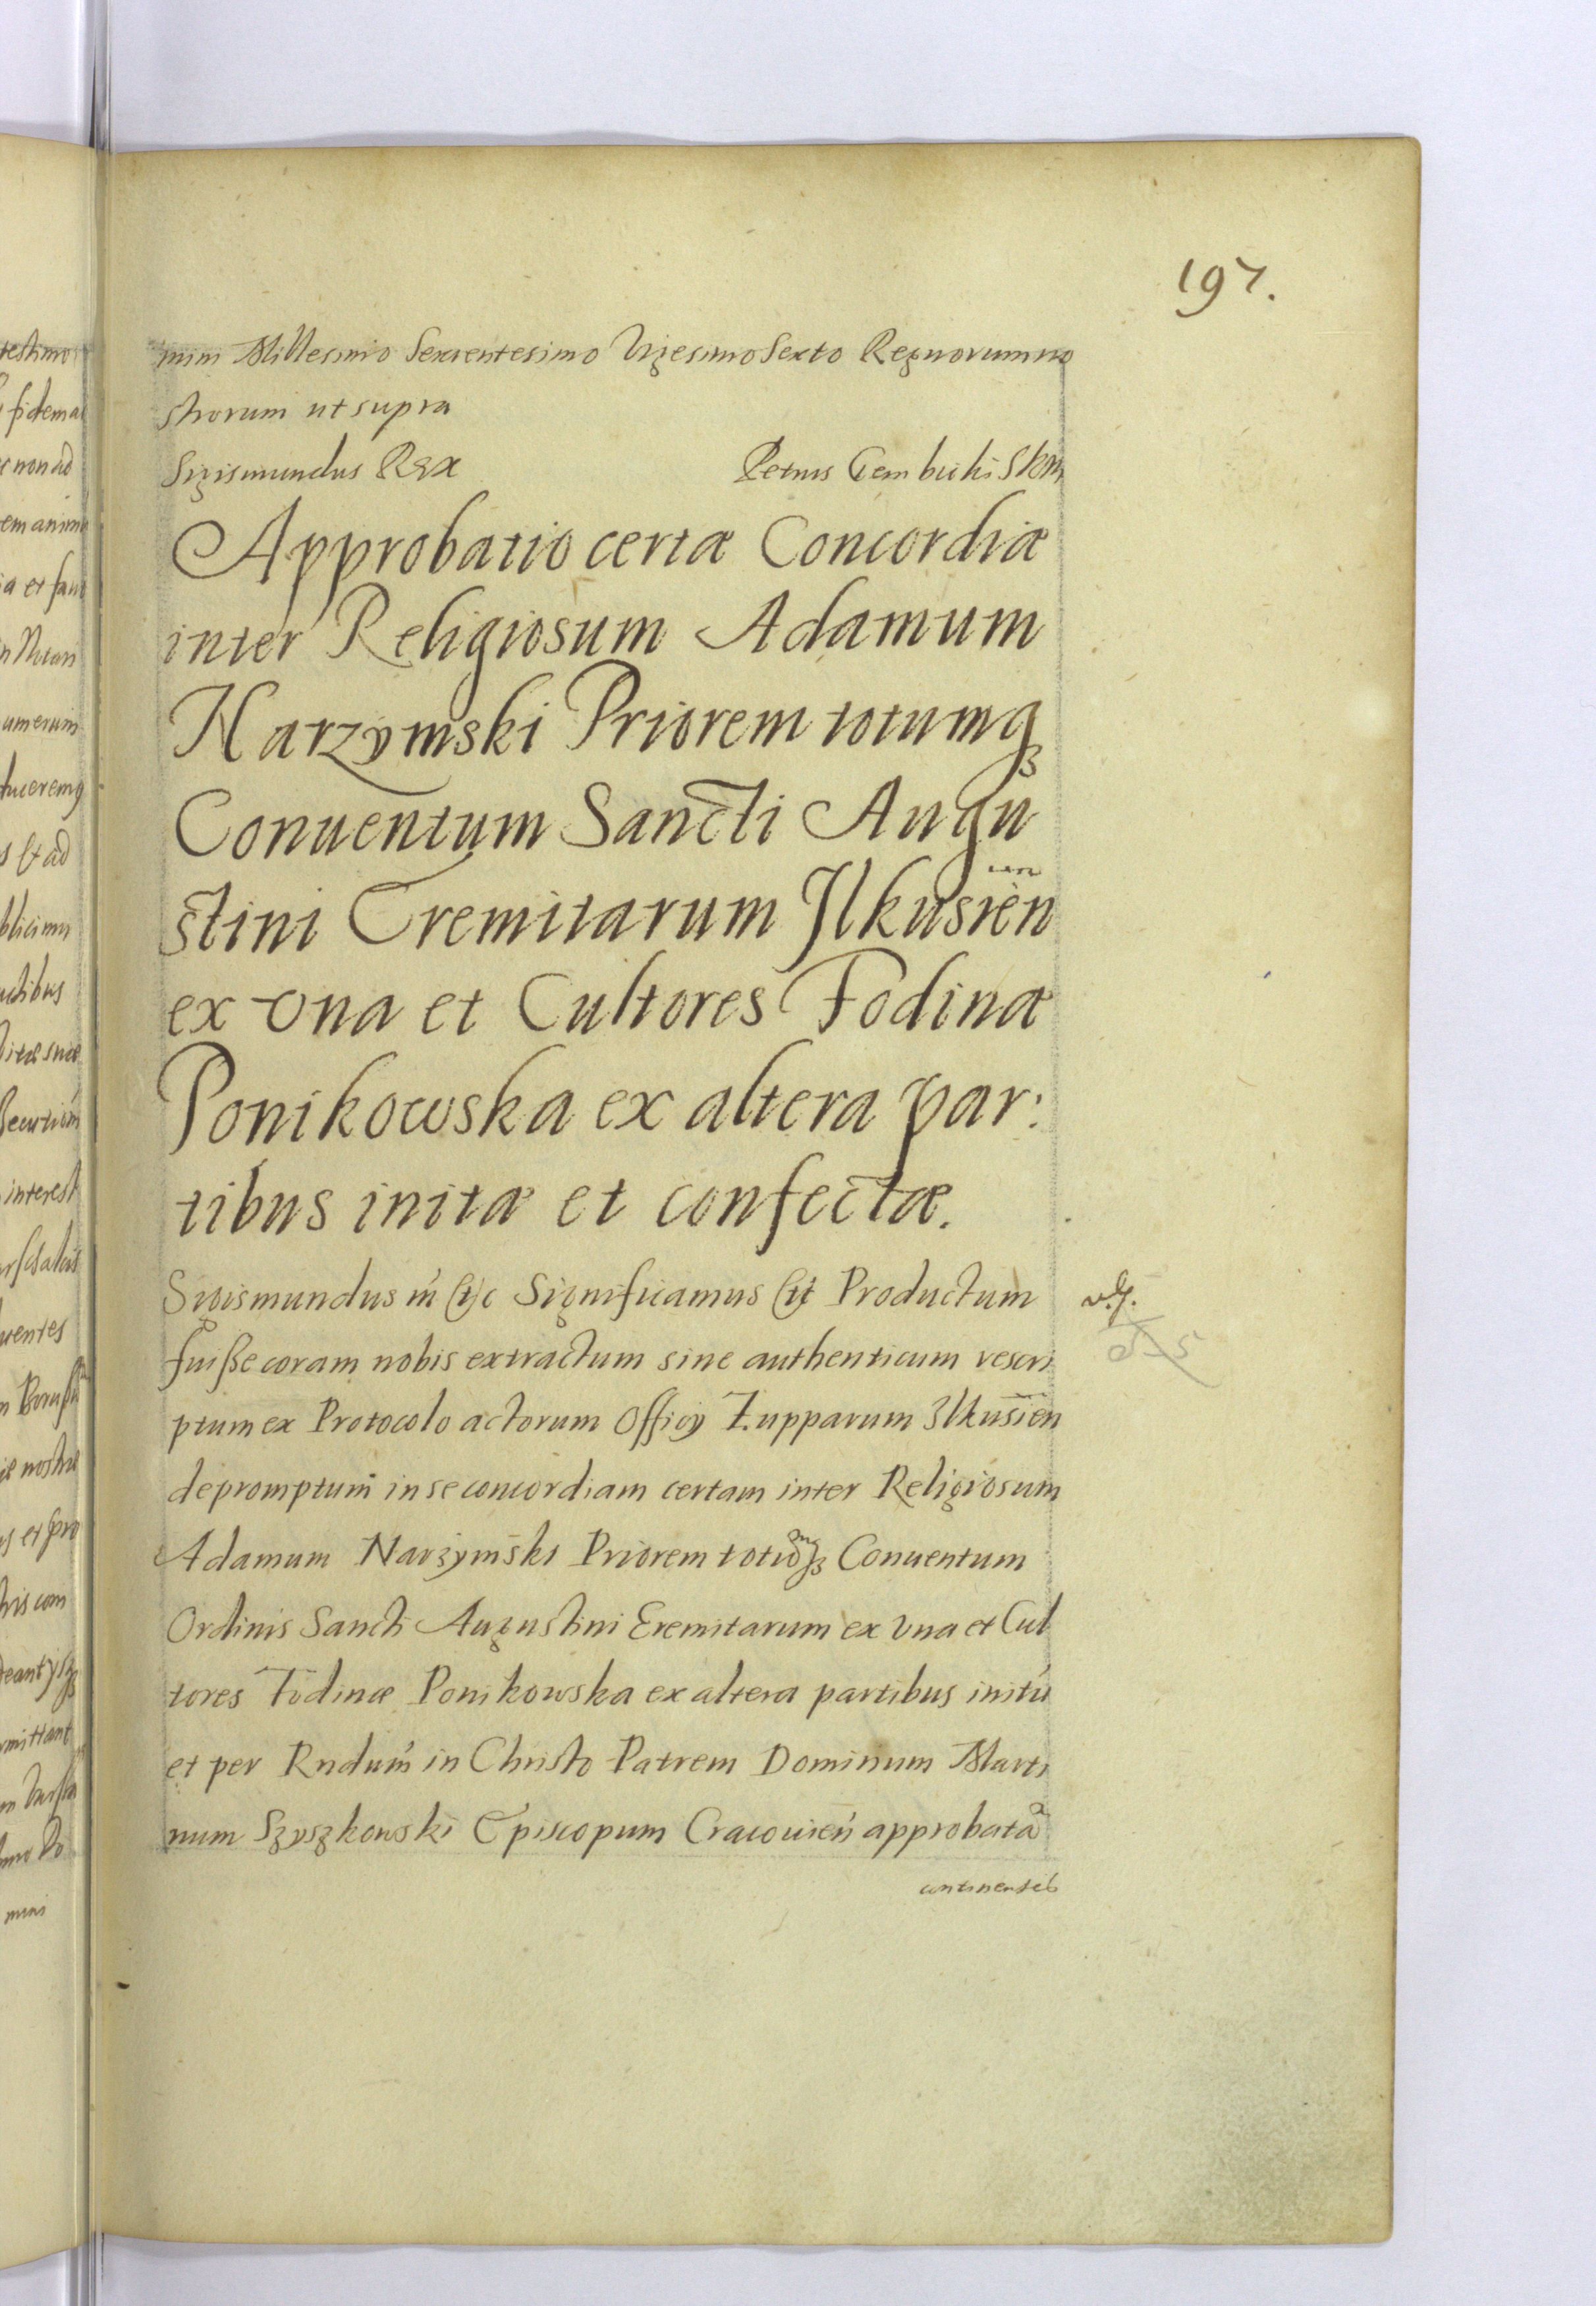 197.
mini Millesimo Sexcentesimo Vigesimo Sexto Regnorum no
strorum ut supra
Sigismundus Rex Petrus Gembicki Skm
Approbatio certæ Concordiæ
inter Religiosum Adamum
Narzymski Priorem totumq
Conuentum Sancti Augu
stini Eremitarum Ilkusien
ex vna et Cultores Fodinæ
Ponikowska ex altera par:
tibus initæ et confectæ.
Sigismundus III etc Significamus etc Productum
fuiße coram nobis extractum siue authenticum rescri
ptum ex Protocolo actorum Officy Zupparum Ilkusien
depromptum in se concordiam certam inter Religiosum
Adamum Narzymski Priorem totumq Conuentum
Ordinis Sancti Augustini Eremitarum ex vna et Cul
tores Fodinæ Ponikowska ex altera partibus initã
et per Rndum in Christo Patrem Dominum Marti
num Szyszkowski Episcopum Cracouien approbatã
continentẽ